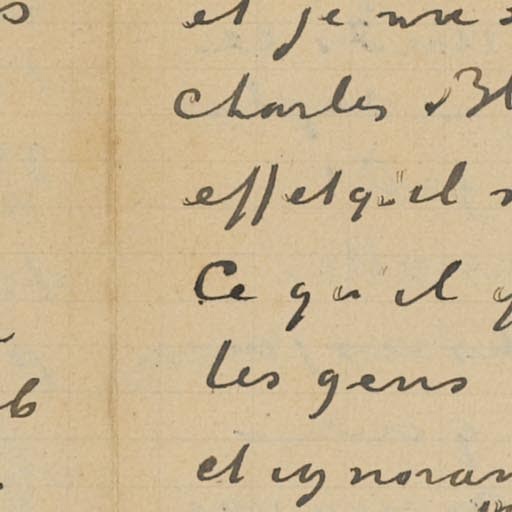 et je me
Charles Bl
effet qu'il
Ce qu'il
les gens
et ignoran